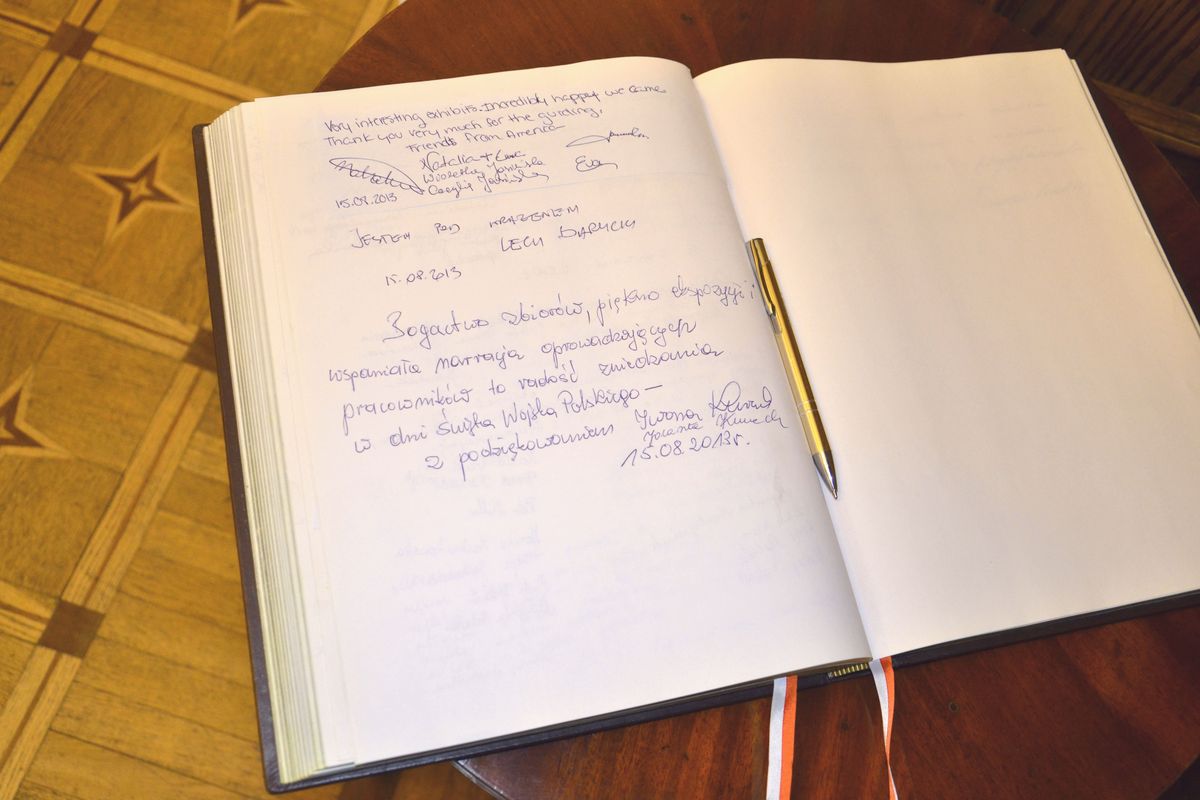 Very interesting exhibits. Incredibly happy we came
Thank you very much for the guiding,
Friends from America
Natalia + Ewa
Wioletta
Ewa
15.08.2013
JESTEM POD WRAŻENIEM
LECH
15.08.2013
Bogactwo zbiorów, piękno ekspozycji i
wspaniała narracja oprowadzających
pracowników to radość zwiedzania
w dni Święta Wojska Polskiego –
z podziękowaniem Iwona
15.08.2013r.